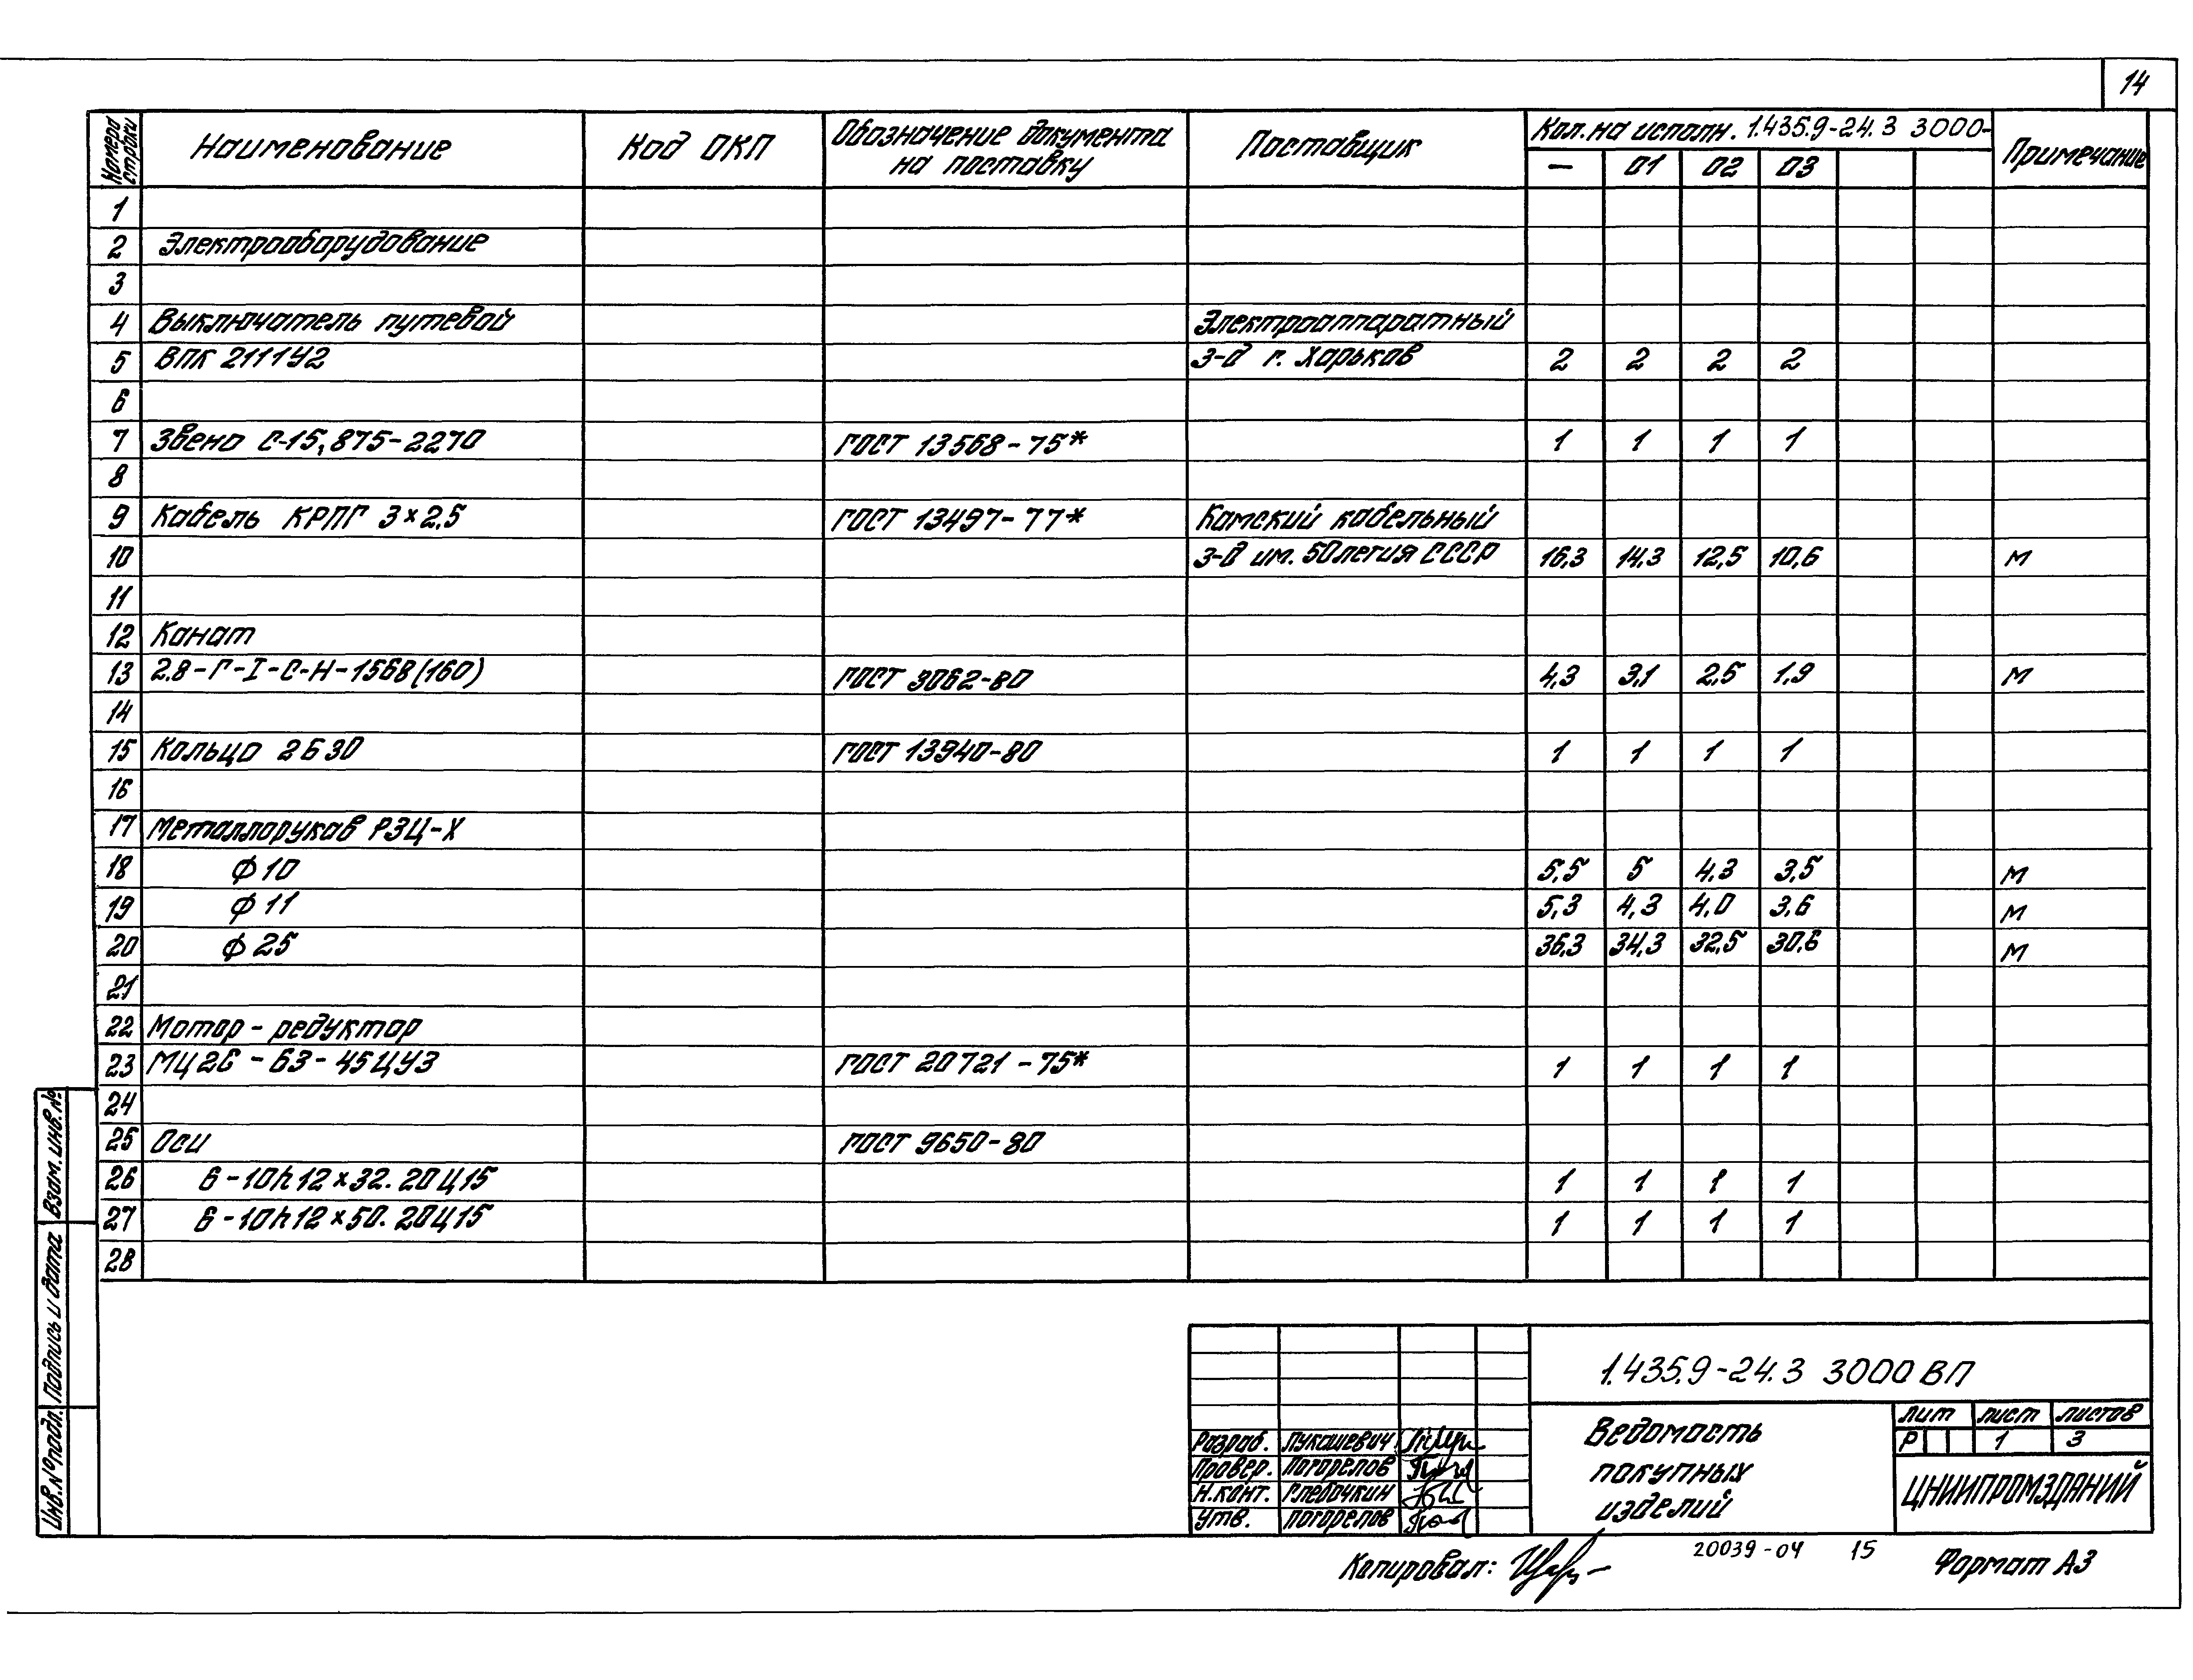 14
Номера строки Наименование Код ОКП Обозначение документа на поставку Поставщик Кол. на исполн. 1.435.9-24.3 3000- Примечание
— 01 02 03
1
2 Электрооборудование
3
4 Выключатель путевой Электроаппаратный
5 ВПК 2111У2 з-д г. Харьков 2 2 2 2
6
7 Звено С-15,875-2270 ГОСТ 13568-75* 1 1 1 1
8
9 Кабель КРПГ 3×2,5 ГОСТ 13497-77* Камский кабельный
10 з-д им. 50летия СССР 16,3 14,3 12,5 10,6 м
11
12 Канат
13 2.8-Г-I-С-Н-1568(160) ГОСТ 3062-80 4,3 3,1 2,5 1,9 м
14
15 Кольцо 2Б30 ГОСТ 13940-80 1 1 1 1
16
17 Металлорукав РЗЦ-Х
18 Ф10 5,5 5 4,3 3,5 м
19 Ф11 5,3 4,3 4,0 3,6 м
20 Ф25 36,3 34,3 32,5 30,6 м
21
22 Мотор-редуктор
23 МЦ2С-63-45ЦУ3 ГОСТ 20721-75* 1 1 1 1
24
25 Оси ГОСТ 9650-80
26 6-10h12×32.20Ц15 1 1 1 1
27 6-10h12×50.20Ц15 1 1 1 1
28
Взам. инв. №
Подпись и дата
Инв. № подл.
1.435.9-24.3 3000 ВП
Разраб. Лукашевич
Провер. Погорелов
Н.конт. Глебочкин
Утв. Погорелов
Ведомость
покупных
изделий
Лит Лист Листов
Р 1 3
ЦНИИПРОМЗДАНИЙ
Копировал: 20039-04 15 Формат А3